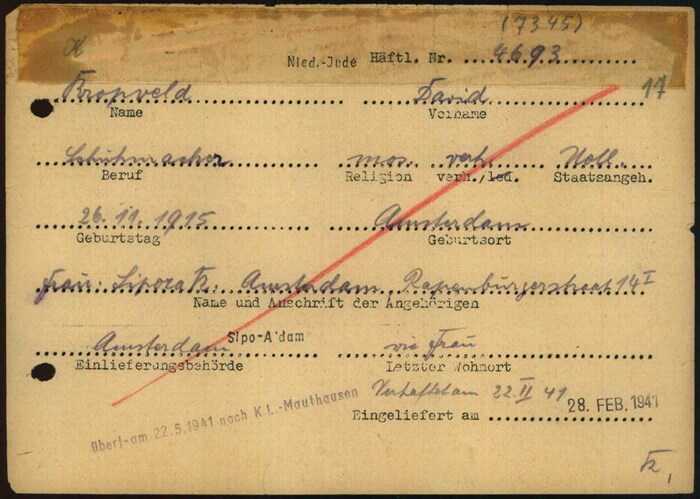 (7345)
Nied.-Jude Häftl. Nr. 4693
17
Kropveld David
Name Vorname
Schuhmacher mos. verh. Holl.
Beruf Religion verh./led. Staatsangeh.
26.11.1915 Amsterdam
Geburtstag Geburtsort
Frau: Sipora K: Amsterdam Rapenburgerstraat 14 I
Name und Anschrift der Angehörigen
Amsterdam Sipo-A'dam wie Frau
Einlieferungsbehörde Letzter Wohnort
Verhaftet am 22.II 41
überf. am 22.5.1941 nach K.L.-Mauthausen
Eingeliefert am 28. FEB. 1941